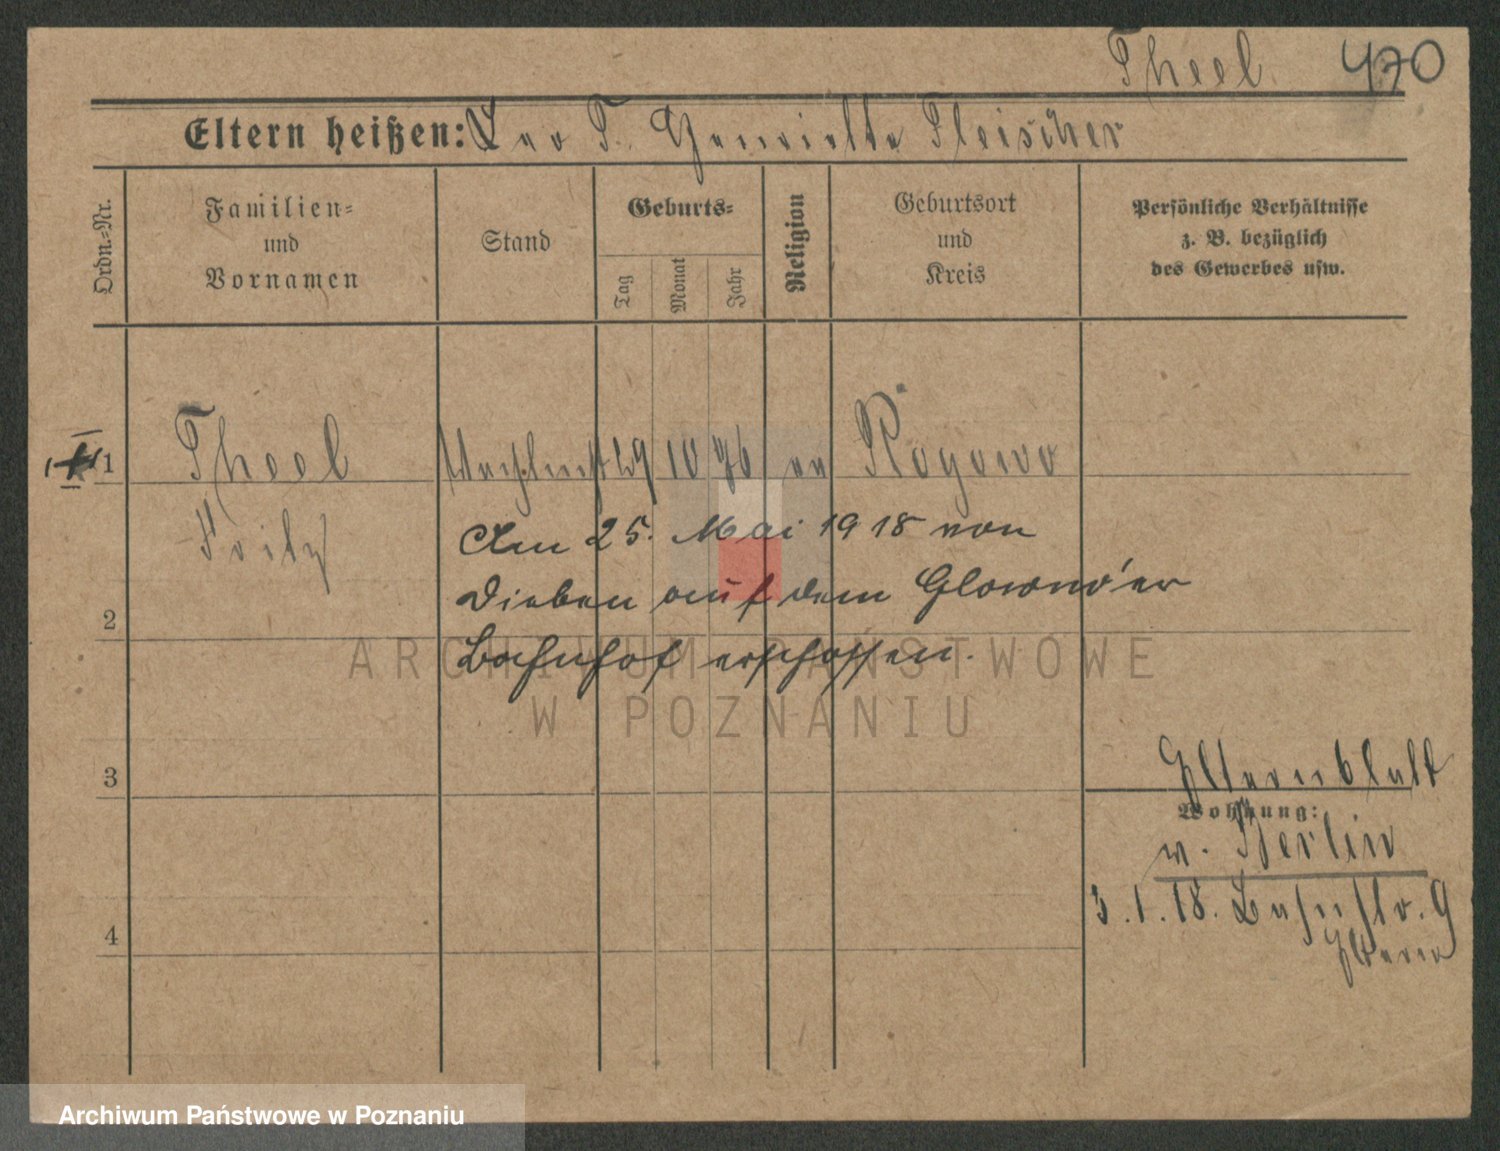 Theel 470
Eltern heißen: Leo T. Henriette Fleischer
Ordn.-Nr.
Familien-
und
Vornamen
Stand
Geburts-
Tag
Monat
Jahr
Religion
Geburtsort
und
Kreis
Persönliche Verhältnisse
z. B. bezüglich
des Gewerbes usw.
1 Theel 10 76 ev Rogowo
Fritz
Am 25. Mai 1918 von
2 Dieben auf dem Glowno'er
Bahnhof erschossen.
ARCHIWUM PAŃSTWOWE
W POZNANIU
3 Elternblatt
Wohnung:
v. Berlin
3.1.18. 9
4 Eltern
Archiwum Państwowe w Poznaniu